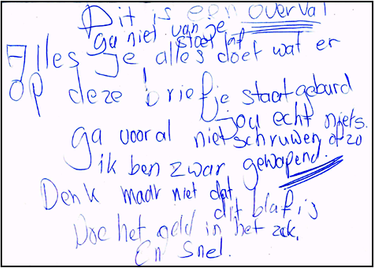 Dit is een overval
ga niet van je stoel af
Alles je alles doet wat er
op deze briefje staat geburd
jou echt niets.
ga vooral niet schruwen of zo
ik ben zwar gewapend.
Denk maar niet dat
dit blaf is
Doe het geld in het zak.
En snel.